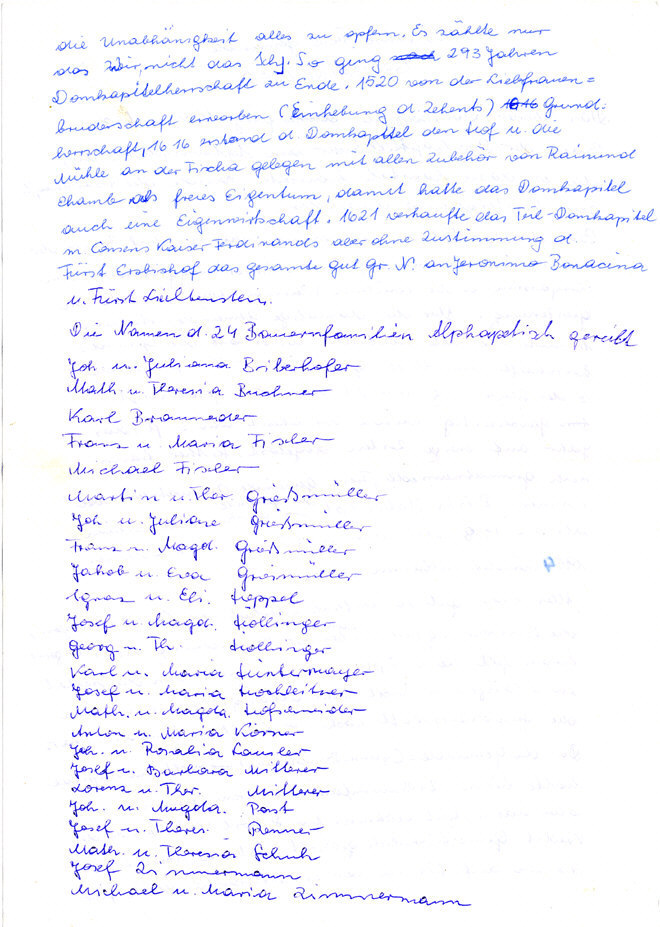 die Unabhänigkeit alles zu opfern. Es zählte nur
das Wir, nicht das Ich. So ging nach 293 Jahren
Domkapitelherrschaft zu Ende. 1520 von der Liebfrauen=
bruderschaft erworben (Einhebung d. Zehents) 1616 Grund.
herrschaft, 1616 erstand d Domkapittel den Hof u. die
Mühle an der Fischa gelegen mit allen Zubehör von Raimund
Chamb als freies Eigentum, damit hatte das Domkapitel
auch eine Eigenwirtschaft. 1621 verkaufte das Teil-Domkapitel
m Consens Kaiser Ferdinands aber ohne Zustimmung d.
Fürst Erzbishof das gesamte gut Gr. N. an Jeronimo Bonacina
u. Fürst Lichtenstein.
Die Namen d. 24 Bauernfamilien Alphapetisch gereiht
Joh. u. Juliana Biberhofer
Math. u. Theresia Buchner
Karl Brauneder
Franz u. Maria Fischer
Michael Fischer
Martin u. Ther. Grießmüller
Joh u. Juliane Grießmüller
Franz u. Magd. Grießmüller
Jakob u. Eva Griesmüller
Ignaz u. Eli. Heppel
Josef u. Magd. Hollinger
Georg u. Th. Hollinger
Karl u. Maria Huntermayer
Josef u. Maria Hochleitner
Math. u. Magda. Hofschneider
Anton u. Maria Körner
Joh. u. Rosalia
Josef u. Barbara Mitterer
Lorenz u. Ther. Mitterer
Joh. u. Magda. Post
Josef u. Theres. Renner
Math. u. Theresia Schuh
Josef Zimmermann
Michael u. Maria Zimmermann